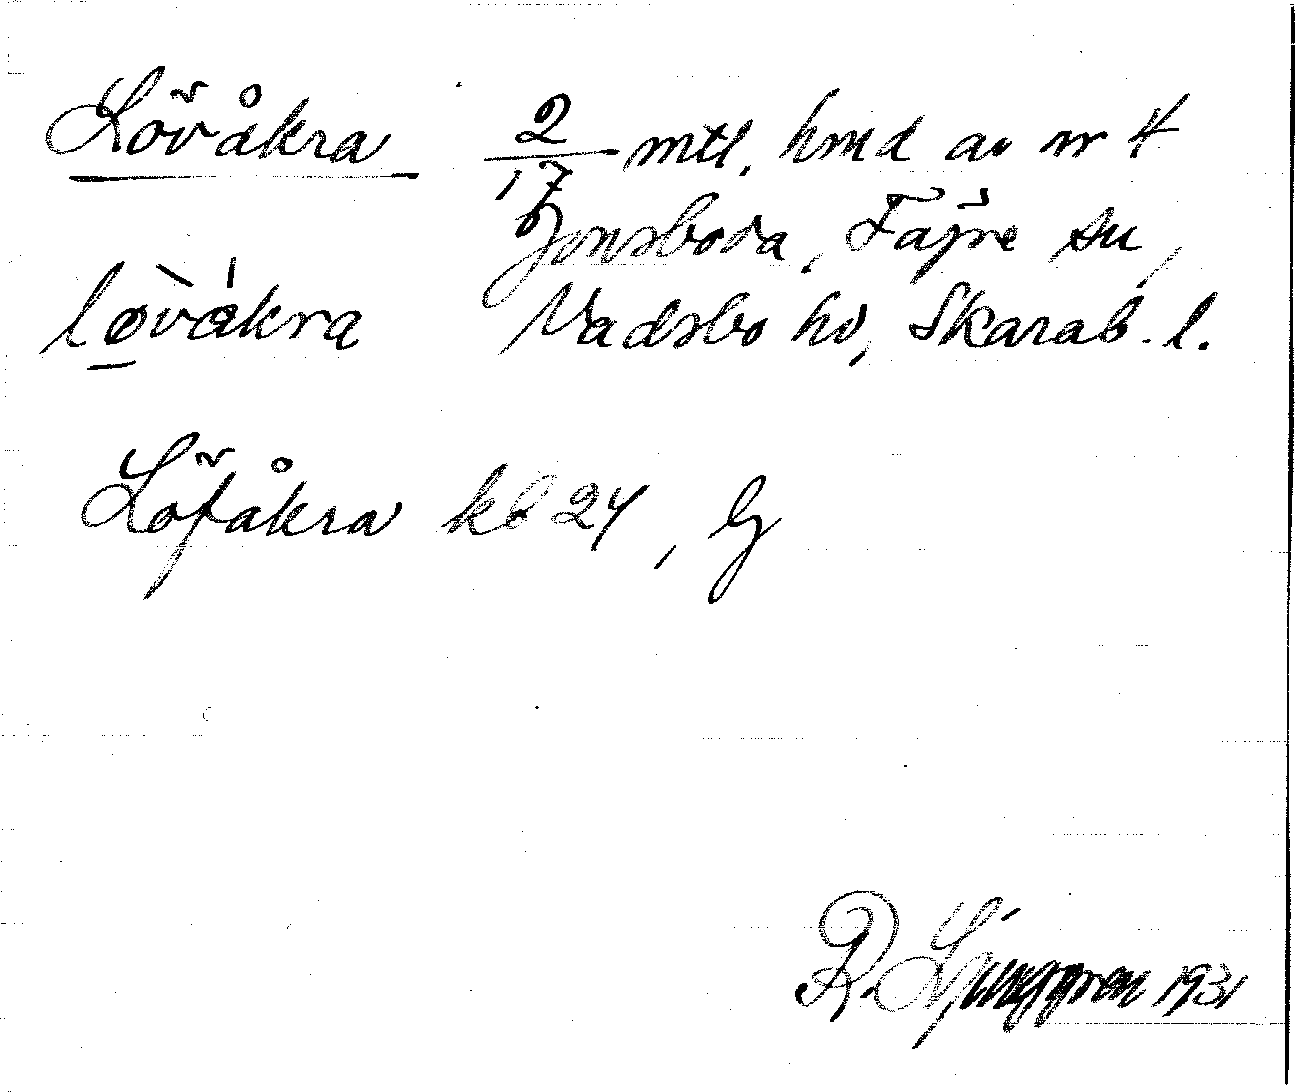 Lövåkra 2/17 mtl. hmd av nr 4
Jonsboda, Fägre sn,
løvåkra Vadsbo hd, Skarab. l.
Löfåkra kb 24, G
R. Ljunggren 1931